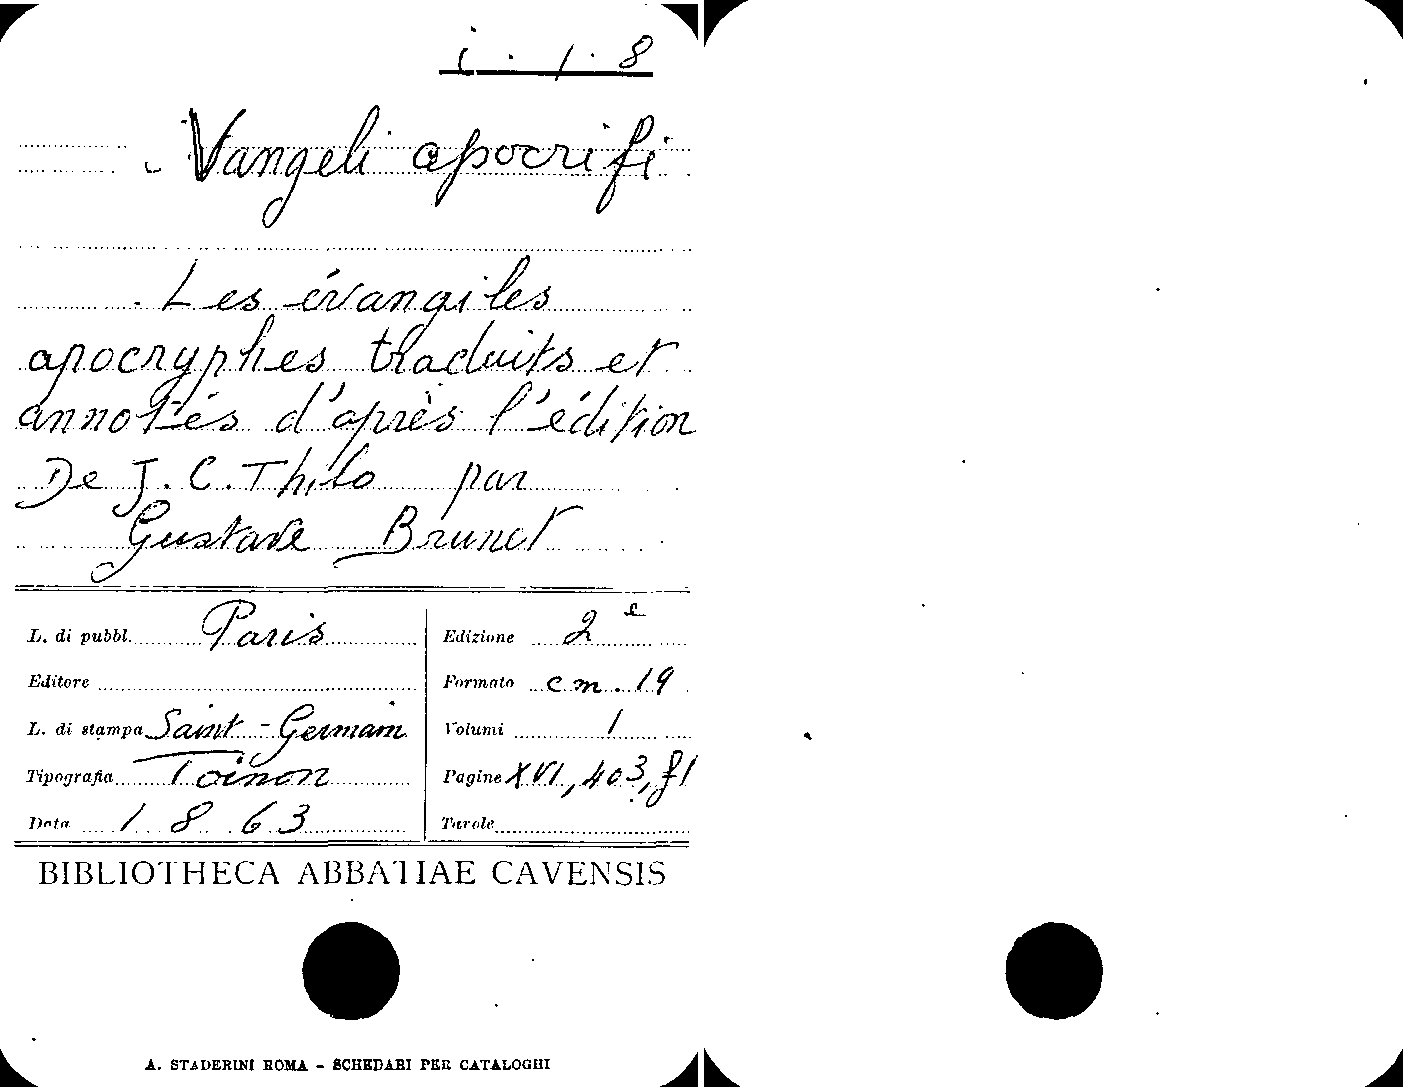 i. 1. 8
Vangeli apocrifi
Les évangiles
apocryphes traduits et
annotés d'après l'édition
De J. C. Thilo par
Gustave Brunet
L. di pubbl. Paris
Editore
L. di stampa Saint-Germain
Tipografia Toinon
Data 1863
Edizione 2e
Formato cm. 19
Volumi 1
Pagine XVI, 403, f1
Tavole
BIBLIOTHECA ABBATIAE CAVENSIS
A. STADERINI ROMA - SCHEDARI PER CATALOGHI